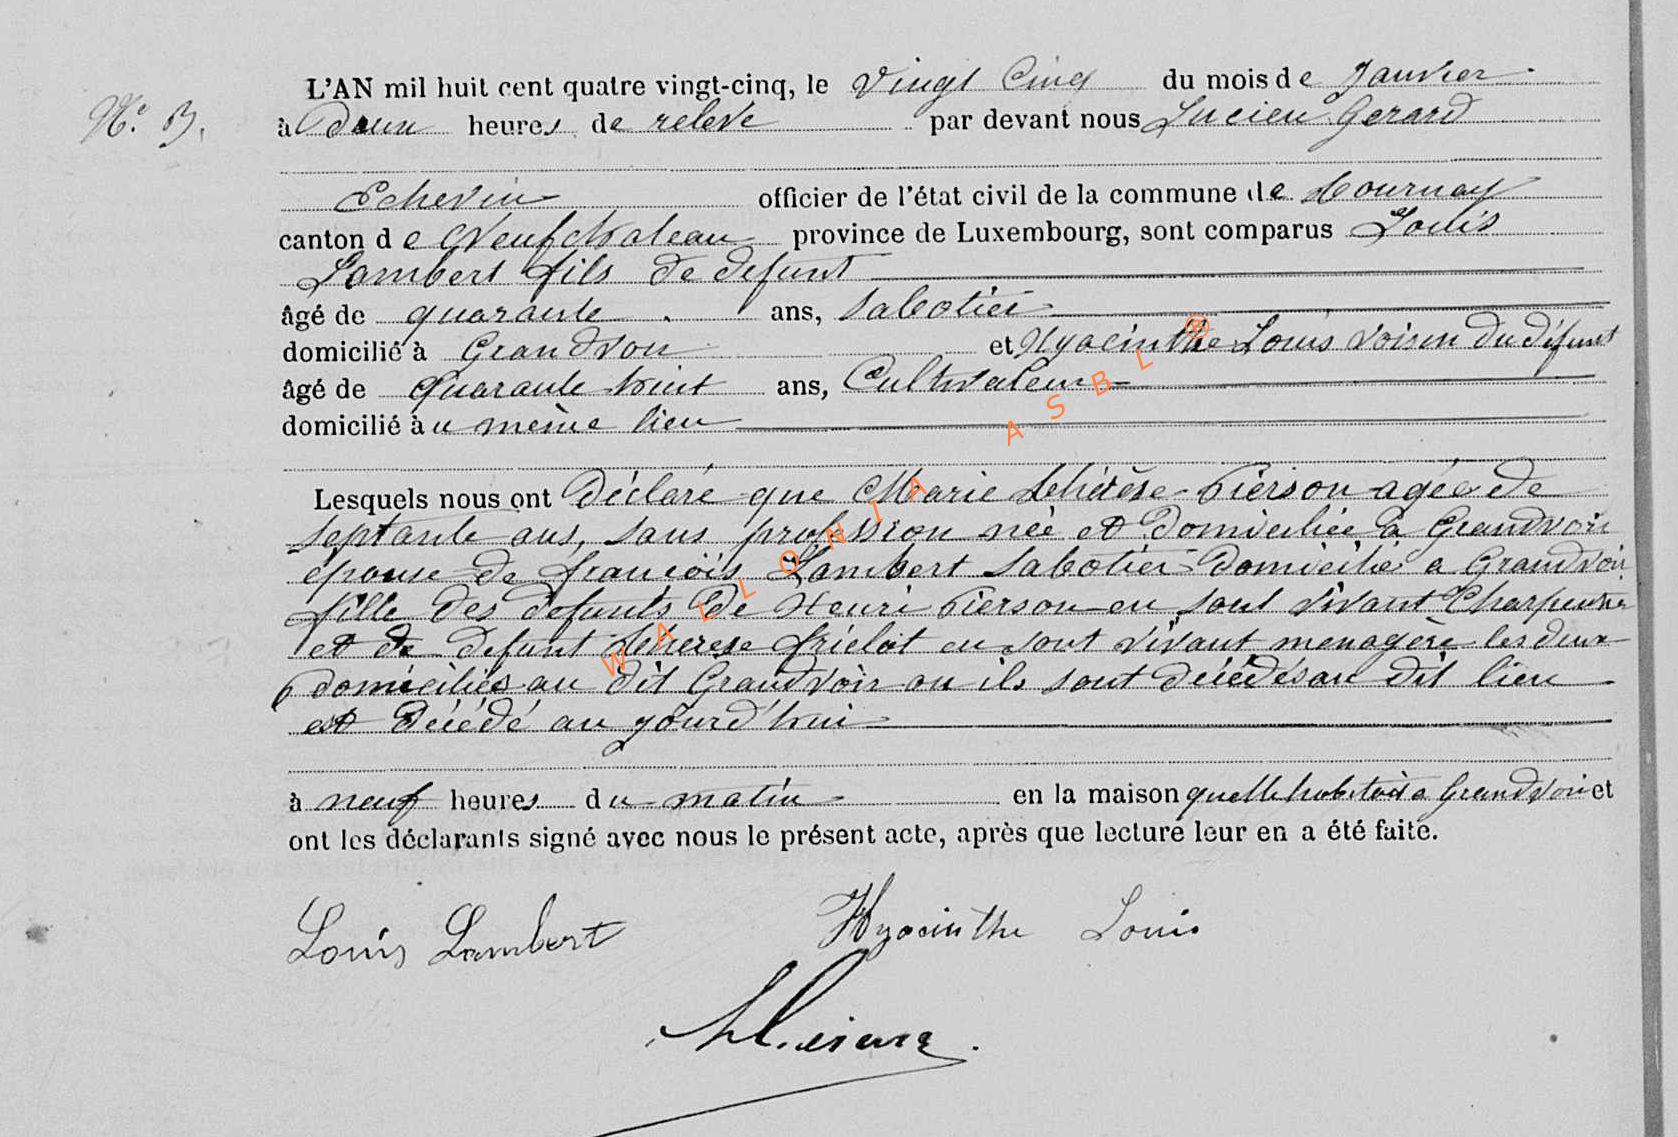 L'AN mil huit cent quatre vingt-cinq, le vingt cinq du mois de Janvier
N° 3. à deux heures de relevé par devant nous Lucien Gerard
Echevin officier de l'état civil de la commune de tournay
canton de Neufchateau province de Luxembourg, sont comparus Louis
Lambert fils de defunt
âgé de quarante ans, sabotier
domicilié à Grandvoir et Hyacinthe Louis voisin du défunt
âgé de quarante huit ans, Cultivateur
domicilié au même lieu
Lesquels nous ont déclaré que Marie thérèse Pierson agée de
septante ans, sans profession née et domiciliée a Grandvoir
épouse de françois Lambert sabotier domicilié a Grandvoir
fille des défunts de Henri Pierson en sont vivant Charpentier
et de defunt therese en sont vivant menagère les deux
domiciliés au dit Grandvoir ou ils sont décédés au dit lieu
est décédé au jourd'hui
à neuf heures du matin en la maison quelle habitait a Grandvoir et
ont les déclarants signé avec nous le présent acte, après que lecture leur en a été faite.
Louis Lambert Hyacinthe Louis
WALLONIA ASBL ®